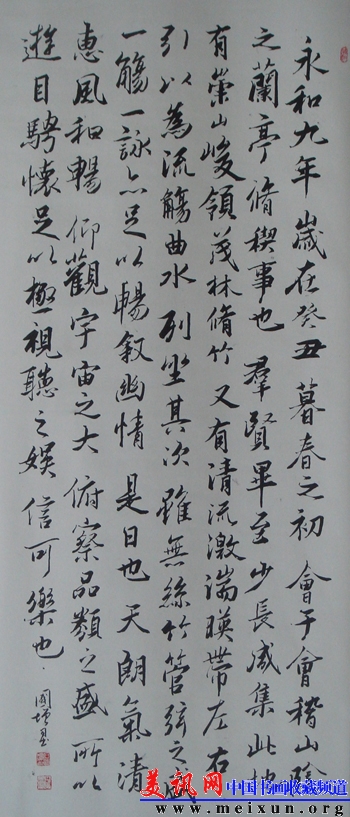 永和九年歲在癸丑暮春之初會于會稽山陰
之蘭亭脩稧事也羣賢畢至少長咸集此地
有崇山峻領茂林脩竹又有清流激湍暎帶左右
引以為流觴曲水列坐其次雖無絲竹管弦之盛
一觴一詠亦足以暢敘幽情是日也天朗氣清
惠風和暢仰觀宇宙之大俯察品類之盛所以
遊目騁懷足以極視聽之娛信可樂也
美讯网 中国书画收藏频道
www.meixun.org